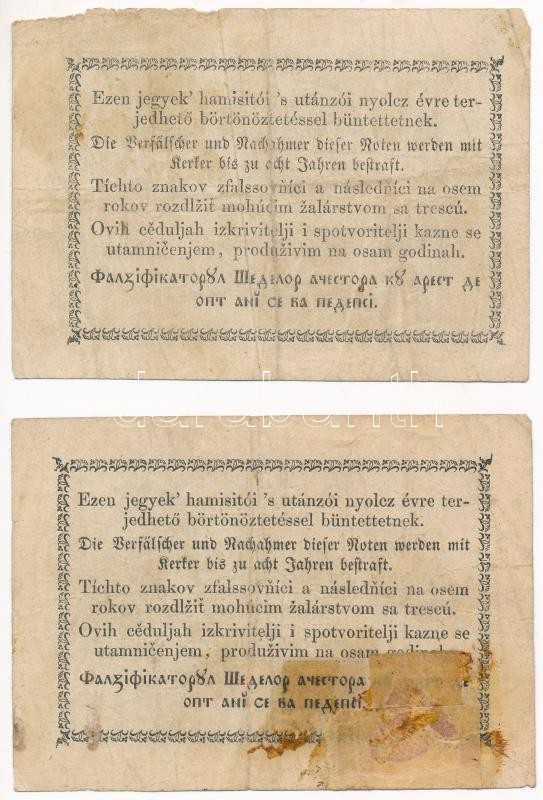 Ezen jegyek' hamisitói 's utánzói nyolcz évre ter-
jedhető börtönöztetéssel büntettetnek.
Die Verfälscher und Nachahmer dieser Noten werden mit
Kerker bis zu acht Jahren bestraft.
Tíchto znakov zfalssovňíci a následňíci na osem
rokov rozdlžiť mohúcim žalárstvom sa trescú.
Ovih cěduljah izkrivitelji i spotvoritelji kazne se
utamničenjem, produživim na osam godinah.
Фалꙁіфікаторꙋл Шеделор ачестора кꙋ арест де
опт анĭ се ва педепсі.
darabanth
Ezen jegyek' hamisitói 's utánzói nyolcz évre ter-
jedhető börtönöztetéssel büntettetnek.
Die Verfälscher und Nachahmer dieser Noten werden mit
Kerker bis zu acht Jahren bestraft.
Tíchto znakov zfalssovňíci a následňíci na osem
rokov rozdlžiť mohúcim žalárstvom sa trescú.
Ovih cěduljah izkrivitelji i spotvoritelji kazne se
utamničenjem, produživim na osam godinah.
Фалꙁіфікаторꙋл Шеделор ачестора де
опт анĭ се ва педепсі.